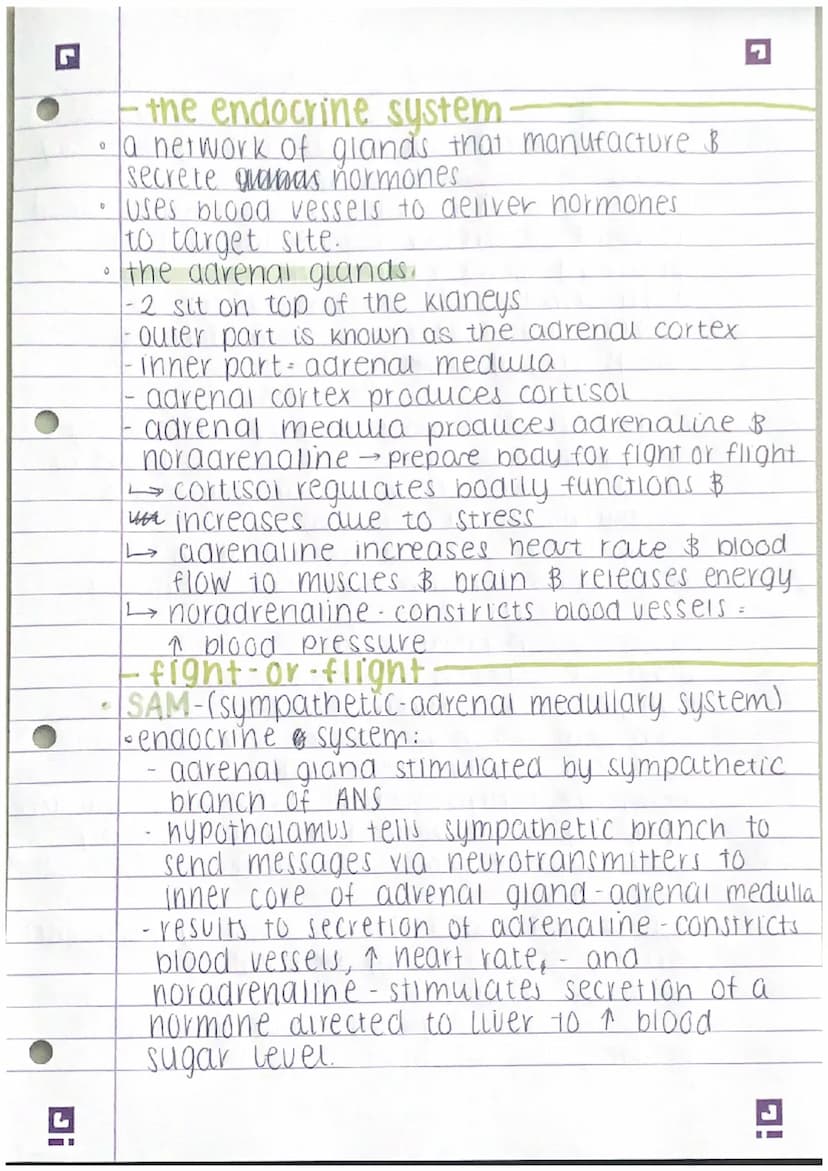 - the endocrine system
◦ a network of glands that manufacture &
secrete hormones
◦ uses blood vessels to deliver hormones
to target site.
◦ the adrenal glands.
- 2 sit on top of the kidneys
- outer part is known as the adrenal cortex
- inner part = adrenal medulla
- adrenal cortex produces cortisol
- adrenal medulla produces adrenaline &
noradrenaline → prepare body for fight or flight
↳ cortisol regulates bodily functions &
increases due to stress
↳ adrenaline increases heart rate & blood
flow to muscles & brain & releases energy
↳ noradrenaline - constricts blood vessels =
↑ blood pressure
- fight-or-flight
• SAM - (sympathetic-adrenal medullary system)
• endocrine system:
- adrenal gland stimulated by sympathetic
branch of ANS
- hypothalamus tells sympathetic branch to
send messages via neurotransmitters to
inner core of adrenal gland - adrenal medulla
- results to secretion of adrenaline - constricts
blood vessels, ↑ heart rate, - and
noradrenaline - stimulates secretion of a
hormone directed to liver to ↑ blood
sugar level.